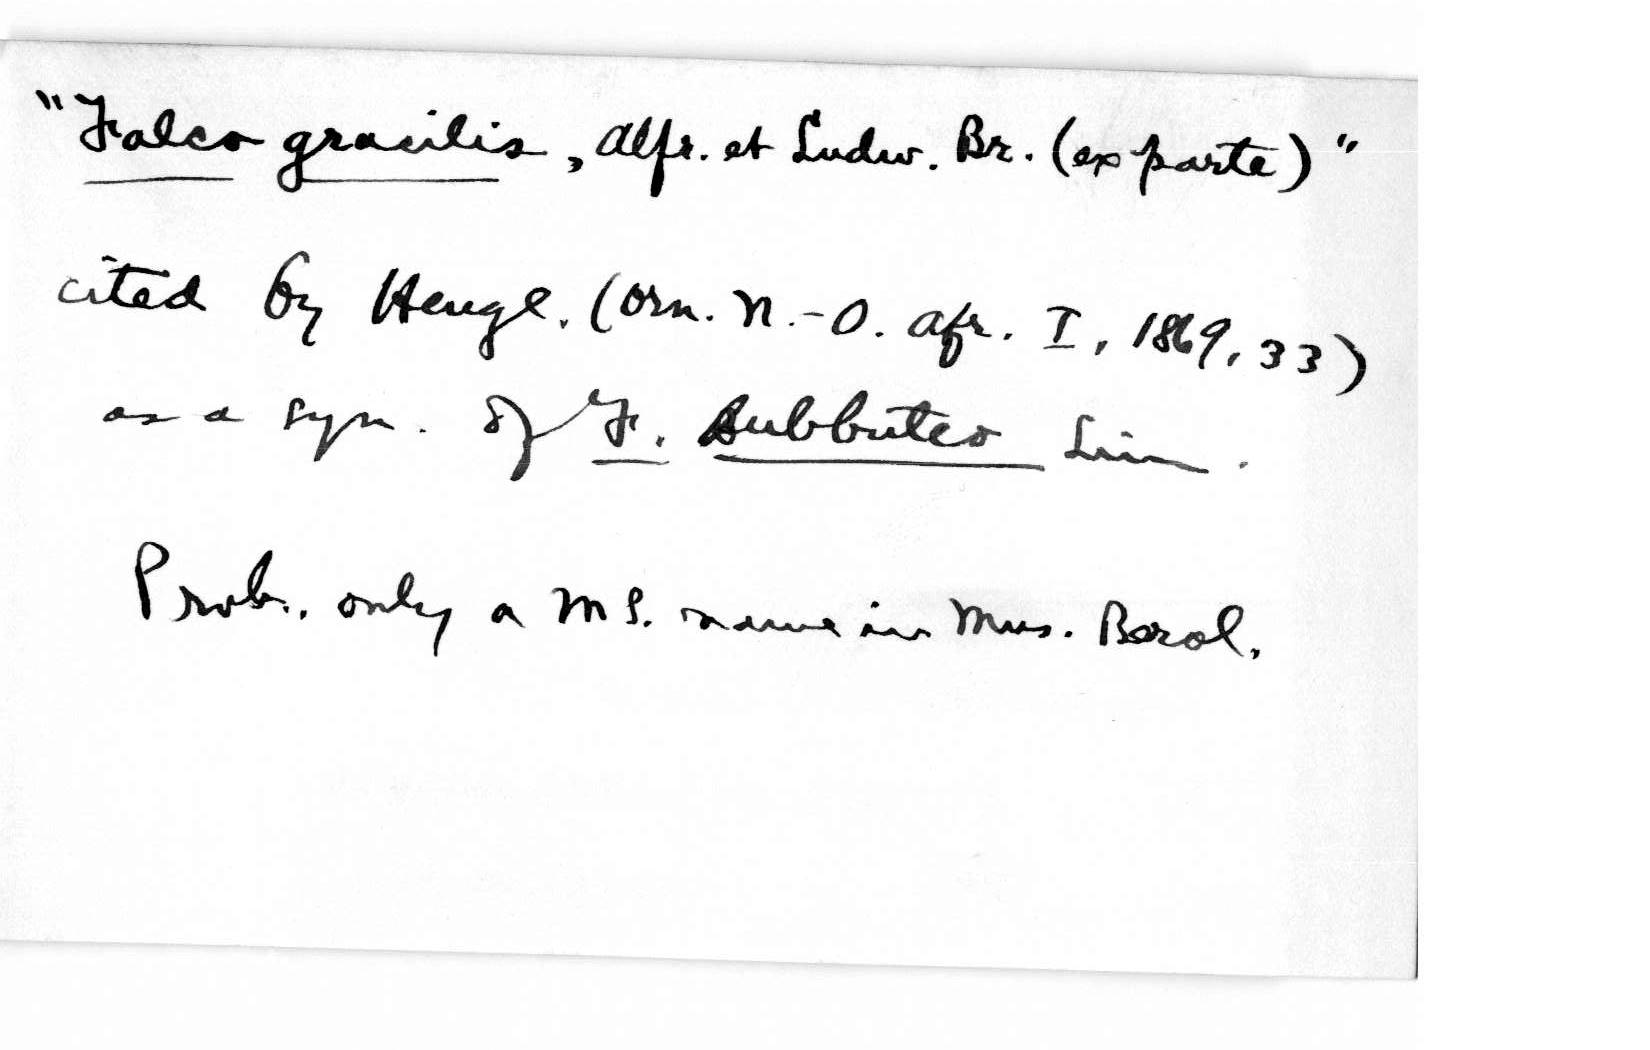 "Falco gracilis, Alfr. et Ludw. Br. (ex parte)"
cited by Heugl. (Orn. N.-O. Afr. I, 1869, 33)
as a syn. of F. subbuteo Linn.
Prob. only a MS. name in Mus. Berol.